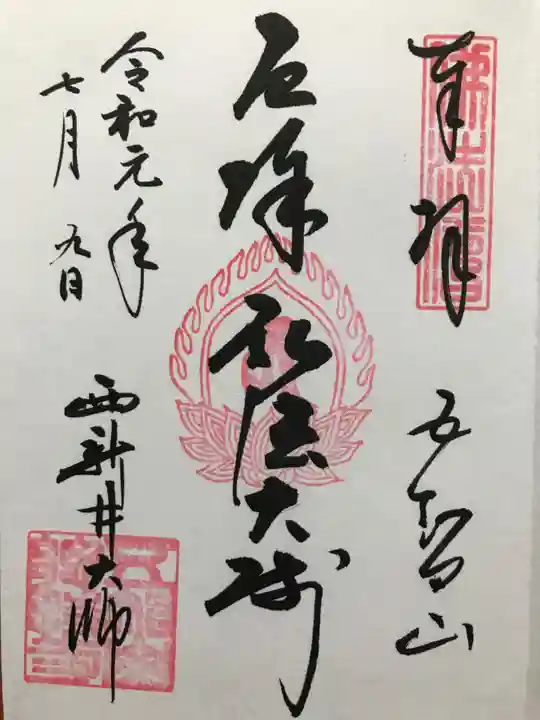 奉拝
五智山
厄除
弘法大師
令和元年
七月九日
西新井大師